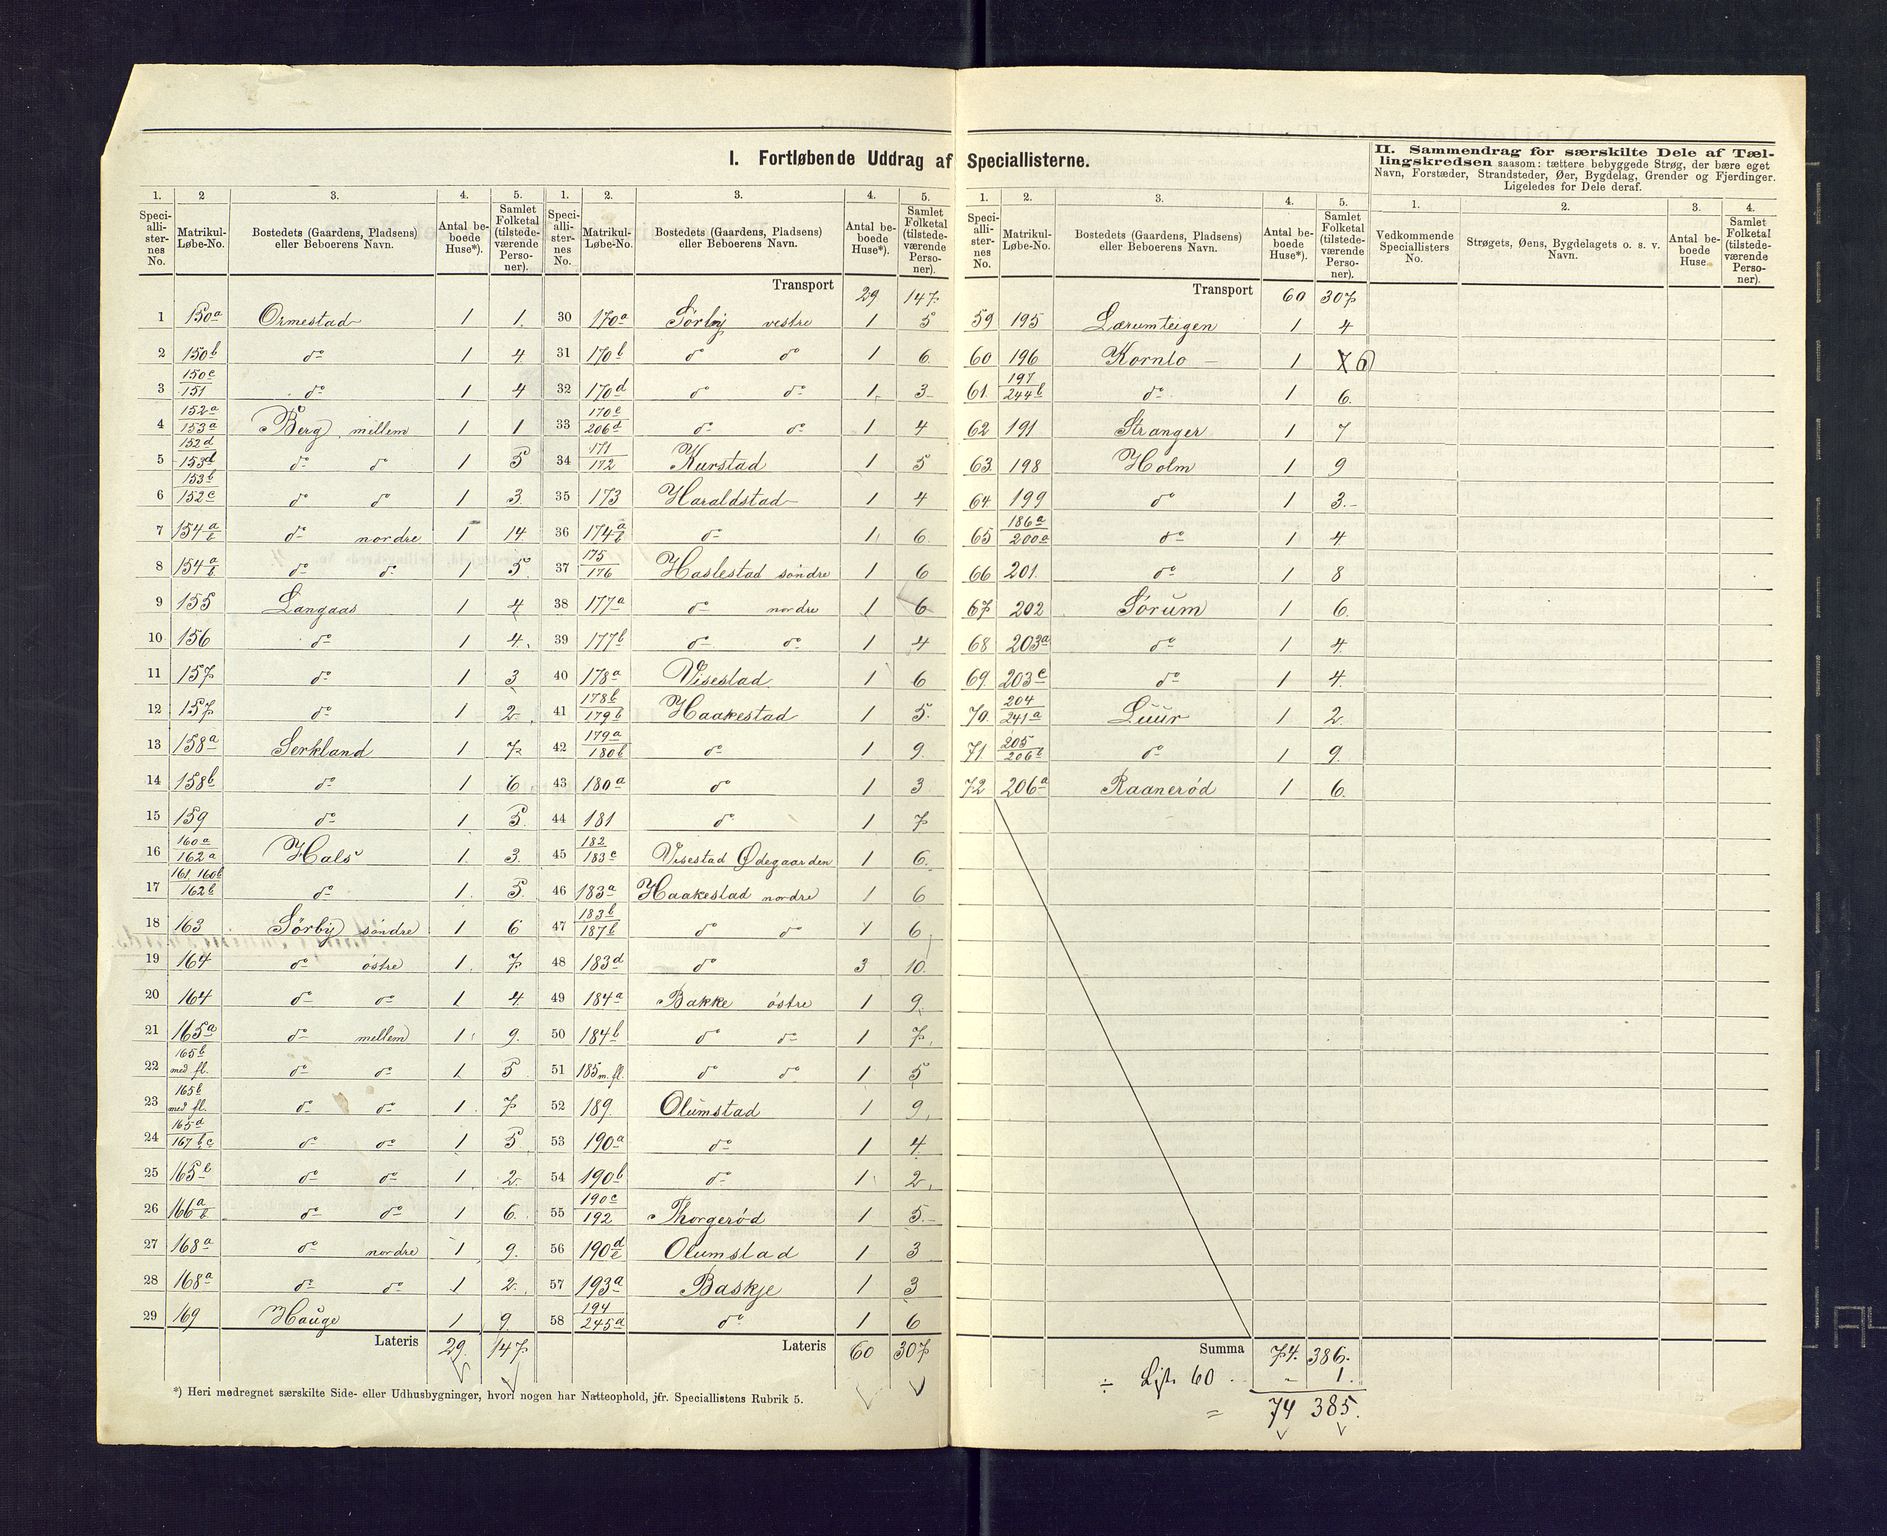 I. Fortløbende Uddrag af Speciallisterne.
II. Sammendrag for særskilte Dele af Tællingskredsen saasom: tættere bebyggede Strøg, der bære eget Navn, Forstæder, Strandsteder, Øer, Bygdelag, Grender og Fjerdinger. Ligeledes for Dele deraf.
1. 2 3. 4. 5.
Speciallisternes No. Matrikul-Løbe-No. Bostedets (Gaardens, Pladsens) eller Beboerens Navn. Antal beboede Huse*). Samlet Folketal (tilstedeværende Personer).
1 150a Ormestad 1 1.
2 150b do 1 4.
3 150c/151 do 1 4
4 152a/153a Berg mellem 1 1
5 152d/153d do do 1 5
6 153b/152c do do 1 3.
7 154a/b do nordre 1 14.
8 154a/b do do 1 5.
9 155 Langaas 1 4
10 156 do 1 4.
11 157 do 1 3
12 157 do 1 2
13 158a Serkland 1 7
14 158b do 1 6
15 159 do 1 5.
16 160a/162a Hals 1. 3.
17 161 160b/162b do 1. 5.
18 163 Sørby søndre 1 6
19 164 do østre 1. 7
20 164 do do 1 4.
21 165a do mellem 1 9.
22 165b med fl. do do 1. 5
23 165b med fl. do do 1. 7
24 165d/167bc do do 1 5
25 165e do do 1. 2.
26 166a/b do do 1 6.
27 168a do nordre 1 9.
28 168a do do 1 2.
29 169 Hauge 1 9.
Lateris 29. 147
*) Heri medregnet særskilte Side- eller Udhusbygninger, hvori nogen har Natteophold, jfr. Speciallistens Rubrik 5.
1. 2. 3. 4. 5.
Speciallisternes No. Matrikul-Løbe-No. Bostedets (Gaardens, Pladsens) eller Beboerens Navn. Antal beboede Huse*). Samlet Folketal (tilstedeværende Personer).
Transport 29 147.
30 170a Sørby vestre 1 5
31 170b do do 1 6.
32 170d do do 1. 3
33 170c/206d do do 1 4
34 171/172 Kurstad 1 5
35 173 Haraldstad 1 4
36 174a/b do 1 6.
37 175/176 Haslestad søndre 1 6
38 177a do nordre 1 6
39 177b do do 1 4
40 178a Visestad 1 6
41 178b/179b Haakestad 1 5.
42 179a/180b do 1 9.
43 180a do 1 3
44 181 do 1 7
45 182/183c Visestad Ødegaarden 1 6.
46 183a Haakestad nordre 1 6
47 183b/187b do do 1 6.
48 183d do 3 10.
49 184a Bakke østre 1 9.
50 184b do do 1 7.
51 185 m. fl. do do 1 5
52 189. Olumstad 1 9.
53 190a do 1 4.
54 190b do 1. 2.
55 190c/192 Thorgerød 1 5.
56 190d/e Olumstad 1 3
57 193a Baskje 1 3
58 194/245a do 1 6
Lateris 60 307
1. 2. 3. 4. 5.
Speciallisternes No. Matrikul-Løbe-No. Bostedets (Gaardens, Pladsens) eller Beboerens Navn. Antal beboede Huse*). Samlet Folketal (tilstedeværende Personer).
Transport 60 307
59 195 Lærumteigen 1 4
60 196 Kornlo 1 7 6
61. 197/244b do 1 6.
62 191 Stranger 1 7
63. 198 Holm 1 9
64. 199 do 1 3.
65 186a/200a do 1 4.
66 201. do 1 8
67 202 Sørum 1 6.
68 203a do 1 4.
69. 203c do 1 4.
70. 204/241a Luur 1 2.
71. 205/206b do 1 9.
72 206a Raanerød 1 6.
Summa 74. 386.
÷ List 60 .. „ 1.
= 74 385.
1. 2. 3. 4.
Vedkommende Speciallisters No. Strøgets, Øens, Bygdelagets o. s. v. Navn. Antal beboede Huse. Samlet Folketal (tilstedeværende Personer).